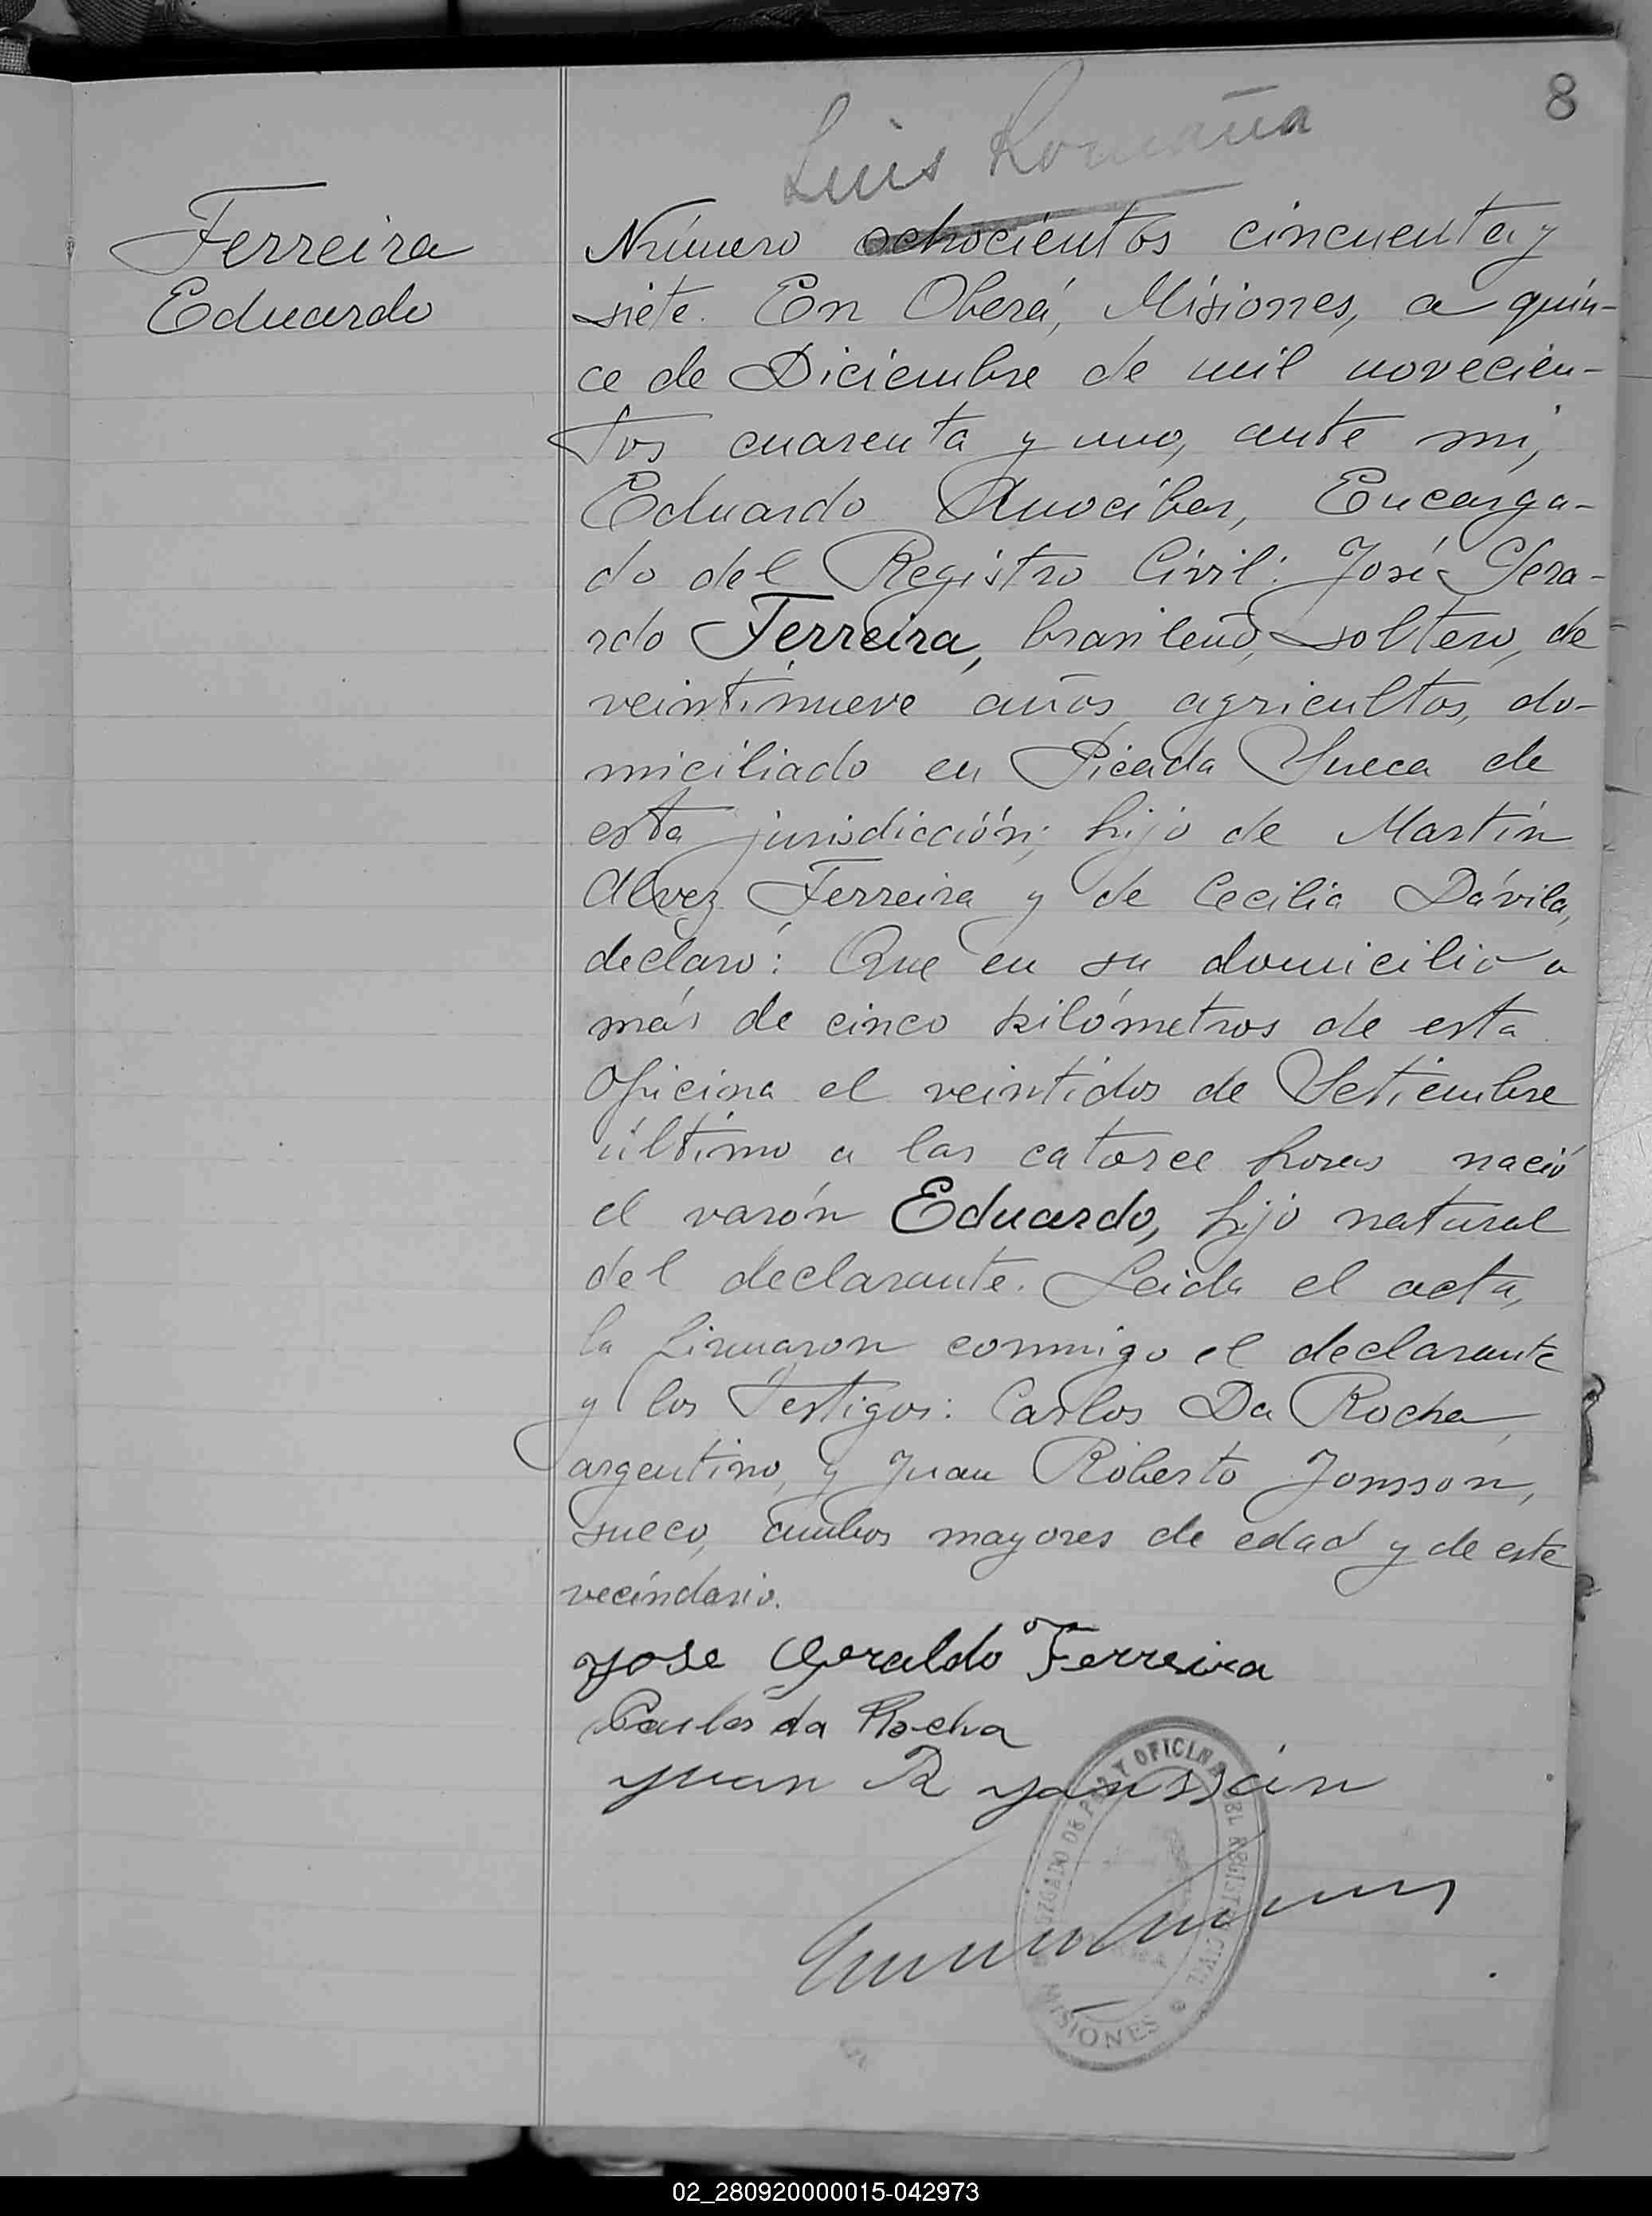 8
Luis Romaña
Ferreira
Eduardo
Número ochocientos cincuenta y
siete. En Oberá, Misiones, a quin-
ce de Diciembre de mil novecien-
tos cuarenta y uno, ante mi,
Eduardo Anocibar, Encarga-
do del Registro Civil: José Gera-
rdo Ferreira, brasileño, soltero, de
veintinueve años, agricultor, do-
miciliado en Picada Sueca de
esta jurisdicción; hijo de Martín
Alvez Ferreira y de Cecilia Dávila,
declaró: Que en su domicilio a
más de cinco kilómetros de esta
Oficina el veintidos de Setiembre
último a las catorce horas nació
el varón Eduardo, hijo natural
del declarante. Leida el acta,
la firmaron conmigo el declarante
y los Testigos: Carlos Da Rocha,
argentino, y Juan Roberto Jonsson,
sueco, ambos mayores de edad y de este
vecindario.
Jose Geraldo Ferreira
Carlos da Rocha
Juan R
JUZGADO DE PAZ Y OFICINA DEL REGISTRO CIVIL
MISIONES
02_280920000015-042973